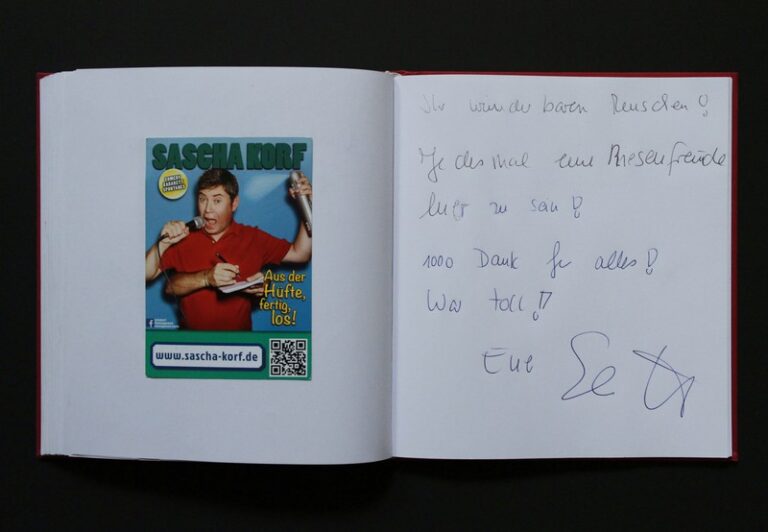 SASCHA KORF
COMEDY
KABARETT
SPONTANES
Aus der
Hüfte,
fertig,
los!
www.sascha-korf.de
Ihr wunderbaren Menschen!
Jedesmal eine Riesenfreude
hier zu sein!
1000 Dank für alles!
War toll!!
Eue